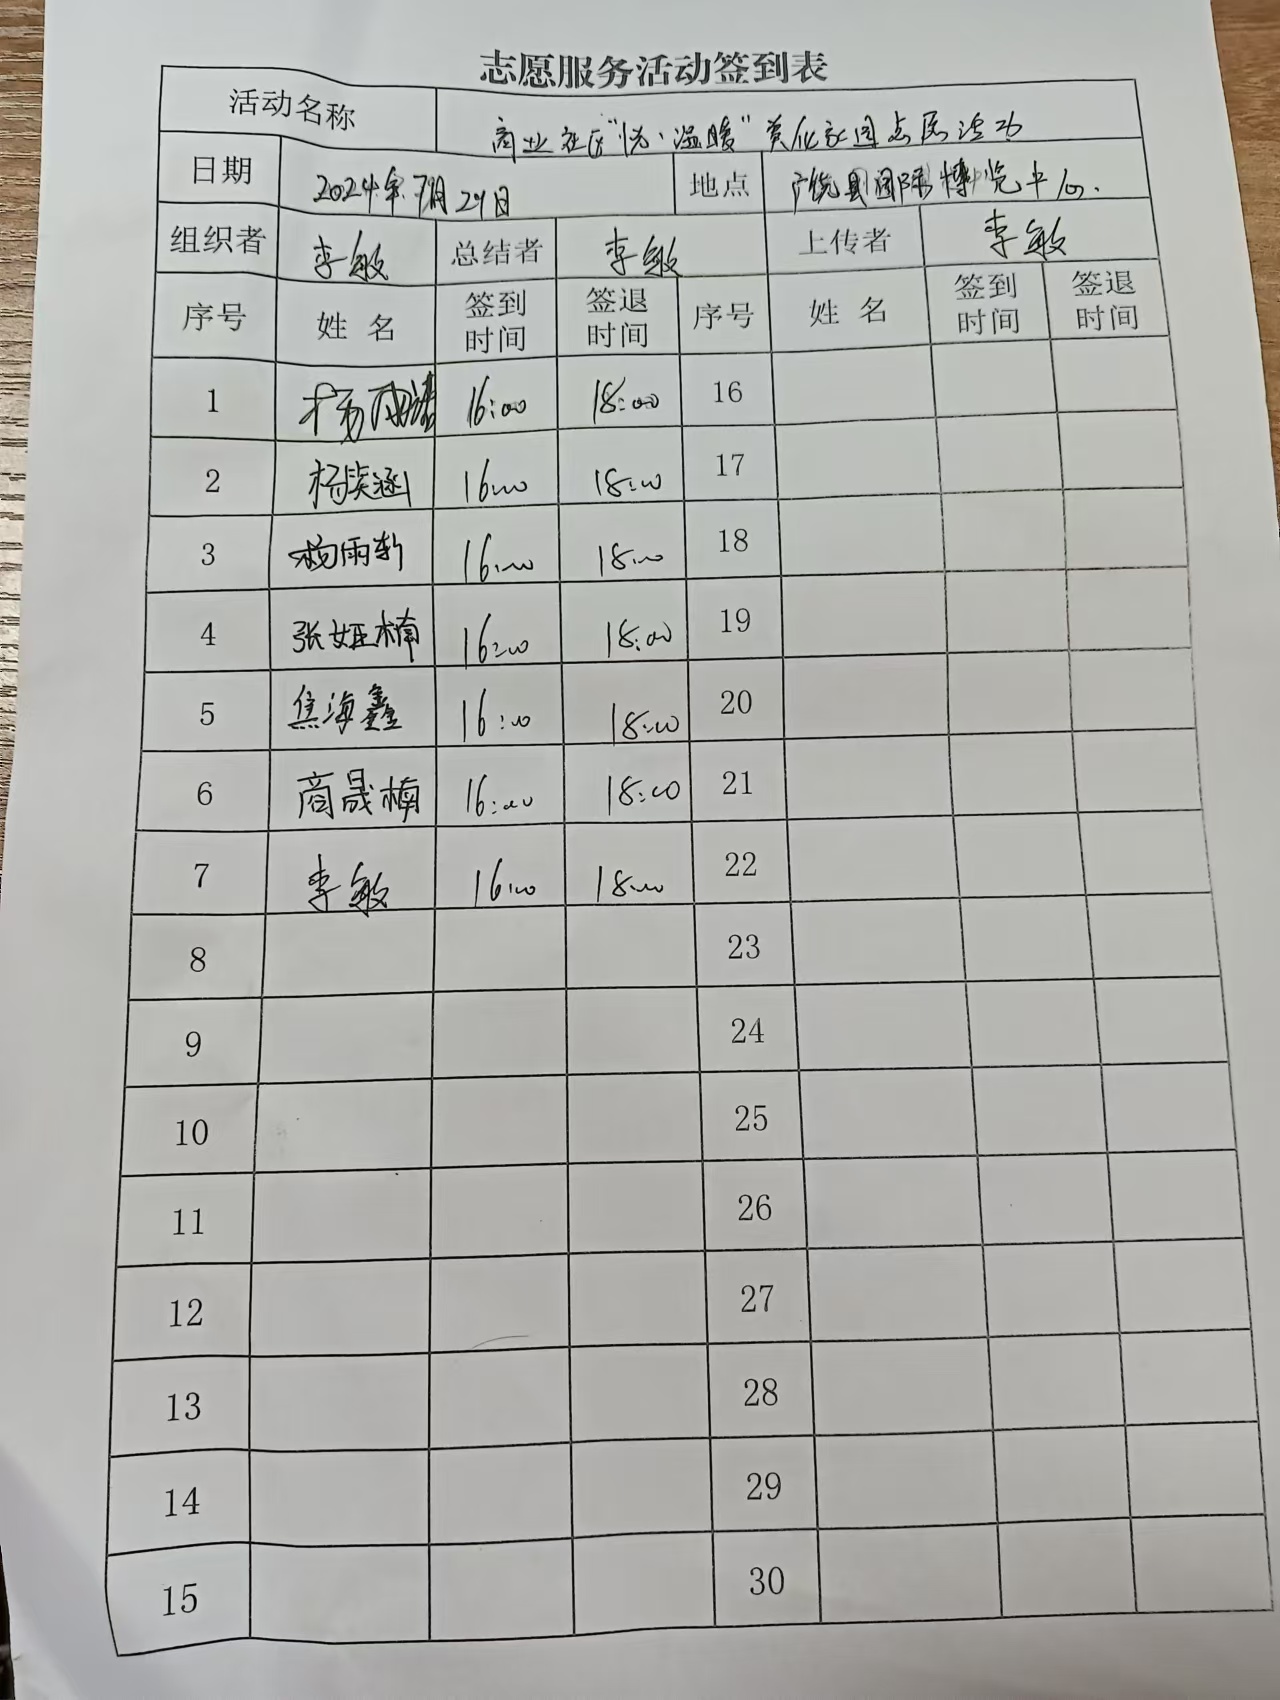 志愿服务活动签到表
活动名称 商业社区“悦·温暖”美化家园志愿活动
日期 2024年7月29日 地点 广饶县国际博览中心.
组织者 李敏 总结者 李敏 上传者 李敏
序号 姓名 签到时间 签退时间 序号 姓名 签到时间 签退时间
1 杨雨 16:00 18:00 16
2 杨 涵 16:00 18:00 17
3 杨雨新 16:00 18:00 18
4 张娅楠 16:00 18:00 19
5 焦海鑫 16:00 18:00 20
6 商晟楠 16:00 18:00 21
7 李敏 16:00 18:00 22
8 23
9 24
10 25
11 26
12 27
13 28
14 29
15 30